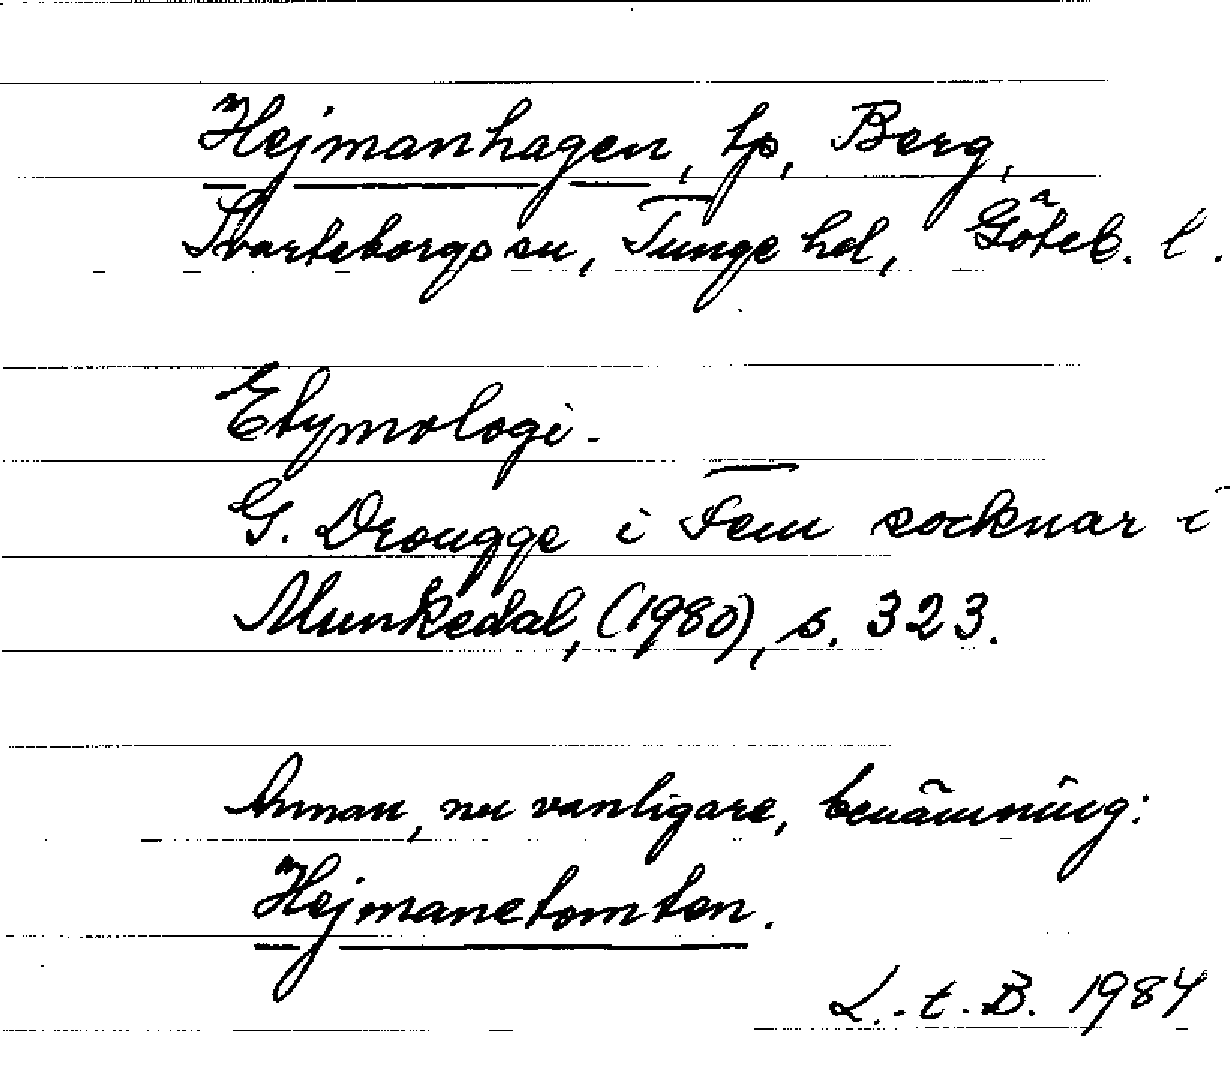 Hejmanhagen, tp, Berg,
Svarteborgs sn, Tunge hd, Göteb. l.
Etymologi.
G. Drougge i Fem socknar i
Munkedal, (1980), s. 323.
Annan, nu vanligare, benämning:
Hejmanetomten.
L. t. B. 1984